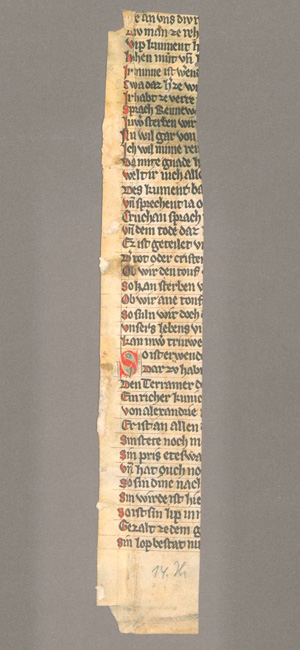 e an vns div r
man ze reh
vip kument h
hen mit vñ h
minne ist wend
swa daz h'ze w
Ir habt ze verre
Sprach Rennew
sterben wir
Nu wil gar von
Ich wil mine rei
Da mite gnade h
welt ir uch alle
Des kument da
vñ sprechent ia o
Cruchan sprach
vñ dem tode dar
Er ist geteilet v
oder cristen
Ob wir den touf
so kan sterben v
Ob wir ane touf
so suln wir doch
vnsers lebens vi
kan truwe
So ist er wende
Daz zv hab
Den Terramer d
Ein richer kunic
von alexandrie
Er ist an allen
Sin stete noch m
Sin pris eteswa
vñ hat ouch no
So sin dine nach
Sin wirde ist hie
so ist sin lip in
Gezalt ze dem g
Sin lop bestat nu
14. Jh